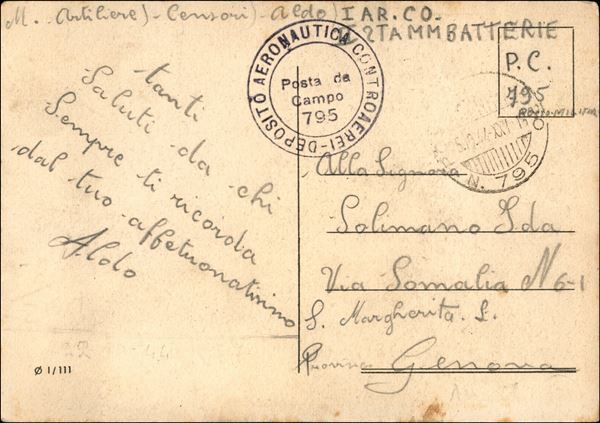 M. Artiliere)-Censori)-Aldo) I AR.CO.
2TAMMBATTERIE
DEPOSITO AERONAUTICA CONTROAEREI
Posta da
Campo
795
P.C.
795
POSTA MILITARE
N. 795
tanti
Saluti da chi
Sempre ti ricorda
dal tuo affetuonatissimo
Aldo
Alla Signora
Solimano Ida
Via Somalia N 6-1
S. Margherita. L.
Provincia Genova
Ø I/III